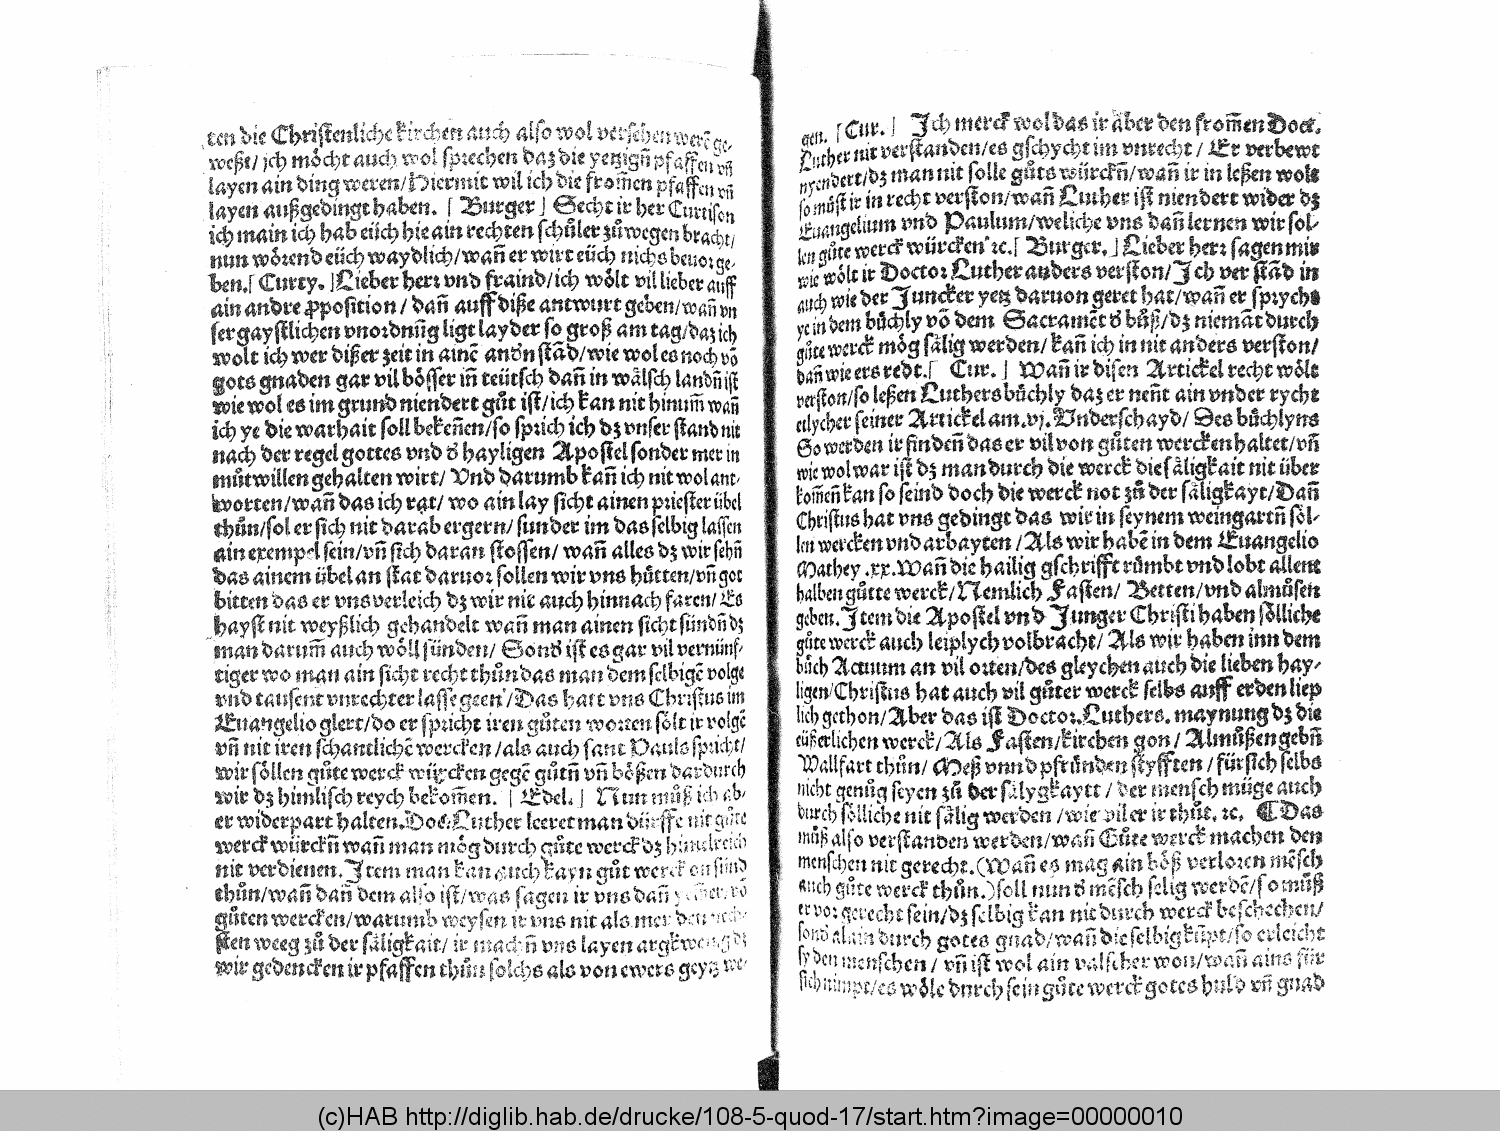 ten die Christenliche kirchen auch also wol versehen werē ge-
weßt/ ich mȯcht auch wol sprechen daz die yetzigñ pfaffen vñ
layen ain ding weren/ Hiermit wil ich die from̄en pfaffen vñ
layen außgedingt haben. [ Burger ] Secht ir her Curtison
ich main ich hab eüch hie ain rechten schůler zůwegen bracht/
nun wȯrend eüch waydlich/ wañ er wirt eüch nichs beuor ge-
ben.[ Curty. ]Lieber herr vnd fraind/ich wȯlt vil lieber auff
ain andre ꝓposition / dañ auff diße antwurt geben/wañ vn
ser gaystlichen vnordnūg ligt layder so groß am tag/daz ich
wolt ich wer dißer zeit in ainē andn stād/wie wol es noch vō
gots gnaden gar vil bȯsser im̄ teütsch dañ in wȧlsch landñ ist
wie wol es im grund niendert gůt ist/ich kan nit hinum̄ wañ
ich ye die warhait soll bekeñen/so sprich ich dz vnser stand nit
nach der regel gottes vnd d hayligen Apostel sonder mer in
můtwillen gehalten wirt/ Vnd darumb kañ ich nit wol ant-
worten/wañ das ich rat/ wo ain lay sicht ainen priester übel
thůn/sol er sich nit darab ergern/ sunder im das selbig lassen
ain exempel sein/vñ sich daran stossen/ wañ alles dz wir sehñ
das ainem übel an stat daruor sollen wir vns hůtten/vñ got
bitten das er vns verleich dz wir nit auch hinnach faren/ Es
hayst nit weyßlich gehandelt wañ man ainen sicht sündñ dz
man darum̄ auch wȯll sünden/ Sond ist es gar vil vernünf-
tiger wo man ain sicht recht thůn das man dem selbigē volge
vnd tausent vnrechter lasse geen/Das hatt vns Christus im
Euangelio glert/do er spricht iren gůten worten sȯlt ir volgē
vñ nit iren schantlichē wercken/als auch sant Pauls spricht/
wir sȯllen gůte werck würcken gegē gůtñ vñ bȯßen dardurch
wir dz himlisch reych bekom̄en. [ Edel. ] Nun můß ich ab-
er widerpart halten.Doc.Luther leeret man dürffe nit gůte
werck würckñ wañ man mȯg durch gůte werck dz himelreich
nit verdienen. Item man kan auch kayn gůt werck on sünd
thůn/wañ dañ dem also ist/was sagen ir vns dañ vō
gůten wercken/warumb weysen ir vns nit als mer den
sten weeg zů der sȧligkait/ ir machñ vns layen argkwenig dz
wir gedencken ir pfaffen thůn solchs als von ewers geytz we-
gen. [Cur. ] Ich merck wol das ir aber den from̄en Doct.
Luther nit verstanden/es gschycht im vnrecht / Er verbewt
nyendert/dz man nit solle gůts würckñ/wañ ir in leßen wolt
so můst ir in recht verston/wañ Luther ist niendert wider dz
Euangelium vnd Paulum/weliche vns dañ lernen wir sol-
len gůte werck würcken ꝛc.[ Burger. ]Lieber herr sagen mir
wie wȯlt ir Doctor Luther anders verston/Ich ver stād in
auch wie der Juncker yetz daruon geret hat/wañ er sprycht
ye in dem bůchly vō dem Sacramēt d bůß/dz niemāt durch
gůte werck mȯg sȧlig werden/ kañ ich in nit anders verston/
dañ wie ers redt.[ Cur. ] Wañ ir disen Artickel recht wȯlt
verston/so leßen Luthers bůchly daz er neñt ain vnder rycht
etlycher seiner Artickel am.vj.Vnderschayd/ Des bůchlyns
So werden ir findeñ das er vil von gůten wercken haltet/vñ
wie wol war ist dz man durch die werck die sȧligkait nit über
kom̄eñ kan so seind doch die werck not zů der sȧligkayt/Dañ
Christus hat vns gedingt das wir in seynem weingartñ sȯl-
len wercken vnd arbayten /Als wir habē in dem Euangelio
Mathey .xx.Wañ die hailig gschrifft rümbt vnd lobt allent
halben gůtte werck/Nemlich Fasten/ Betten/vnd almůsen
geben.Item die Apostel vnd Junger Christi haben sȯlliche
gůte werck auch leiplych volbracht/ Als wir haben inn dem
bůch Actuum an vil orten/des gleychen auch die lieben hay-
ligen/Christus hat auch vil gůter werck selbs auff erden liep
lich gethon/Aber das ist Doctor.Luthers. maynung dz die
eüßerlichen werck/Als Fasten/kirchen gon/ Almůßen gebñ
Wallfart thůn/ Meß vnnd pfründen styfften /für sich selbs
nicht genůg seyen zů der sȧlygkaytt /der mensch müge auch
durch sȯlliche nit sȧlig werden /wie vil er ir thůt. ꝛc. ¶ Das
můß also verstanden werden/wañ Gůte werck machen den
menschen nit gerecht.(Wañ es mag ain bȯß verloren mēsch
auch gůte werck thůn.)soll nun d mēsch selig werdē/so můß
er vor gerecht sein/dz selbig kan nit durch werck beschechen/
sond alain durch gotes gnad/wañ die selbig kūpt/so erleicht
sy den menschen / vñ ist wol ain valscher won/wañ ains für
sich nimpt/es wȯle durch sein gůte werck gotes huld vñ gnad
(c)HAB http://diglib.hab.de/drucke/108-5-quod-17/start.htm?image=00000010